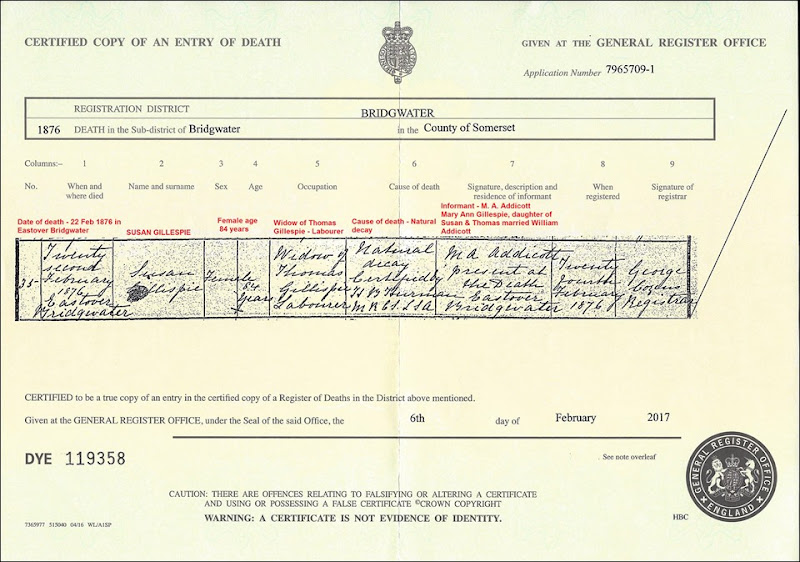 CERTIFIED COPY OF AN ENTRY OF DEATH
GIVEN AT THE GENERAL REGISTER OFFICE
Application Number 7965709-1
REGISTRATION DISTRICT
BRIDGWATER
1876 DEATH in the Sub-district of Bridgwater in the County of Somerset
Columns:– 1 2 3 4 5 6 7 8 9
No. When and where died Name and surname Sex Age Occupation Cause of death Signature, description and residence of informant When registered Signature of registrar
Date of death - 22 Feb 1876 in
Eastover Bridgwater
SUSAN GILLESPIE
Female age
84 years
Widow of Thomas
Gillespie - Labourer
Cause of death - Natural
decay
Informant - M. A. Addicott
Mary Ann Gillespie, daughter of
Susan & Thomas married William
Addicott
35
Twenty
second
February
1876
Eastover
Bridgwater
Susan
Gillespie
Female
84
years
Widow of
Thomas
Gillespie
Labourer
Natural
decay
Certified by
MRCS. LSA
M A Addicott
present at
the Death
Eastover
Bridgwater
Twenty
fourth
February
1876
George
Registrar
CERTIFIED to be a true copy of an entry in the certified copy of a Register of Deaths in the District above mentioned.
Given at the GENERAL REGISTER OFFICE, under the Seal of the said Office, the 6th day of February 2017
DYE 119358
See note overleaf
CAUTION: THERE ARE OFFENCES RELATING TO FALSIFYING OR ALTERING A CERTIFICATE
AND USING OR POSSESSING A FALSE CERTIFICATE ©CROWN COPYRIGHT
WARNING: A CERTIFICATE IS NOT EVIDENCE OF IDENTITY.
GENERAL REGISTER OFFICE
ENGLAND
HBC
7365977 515040 04/16 WL/A1SP